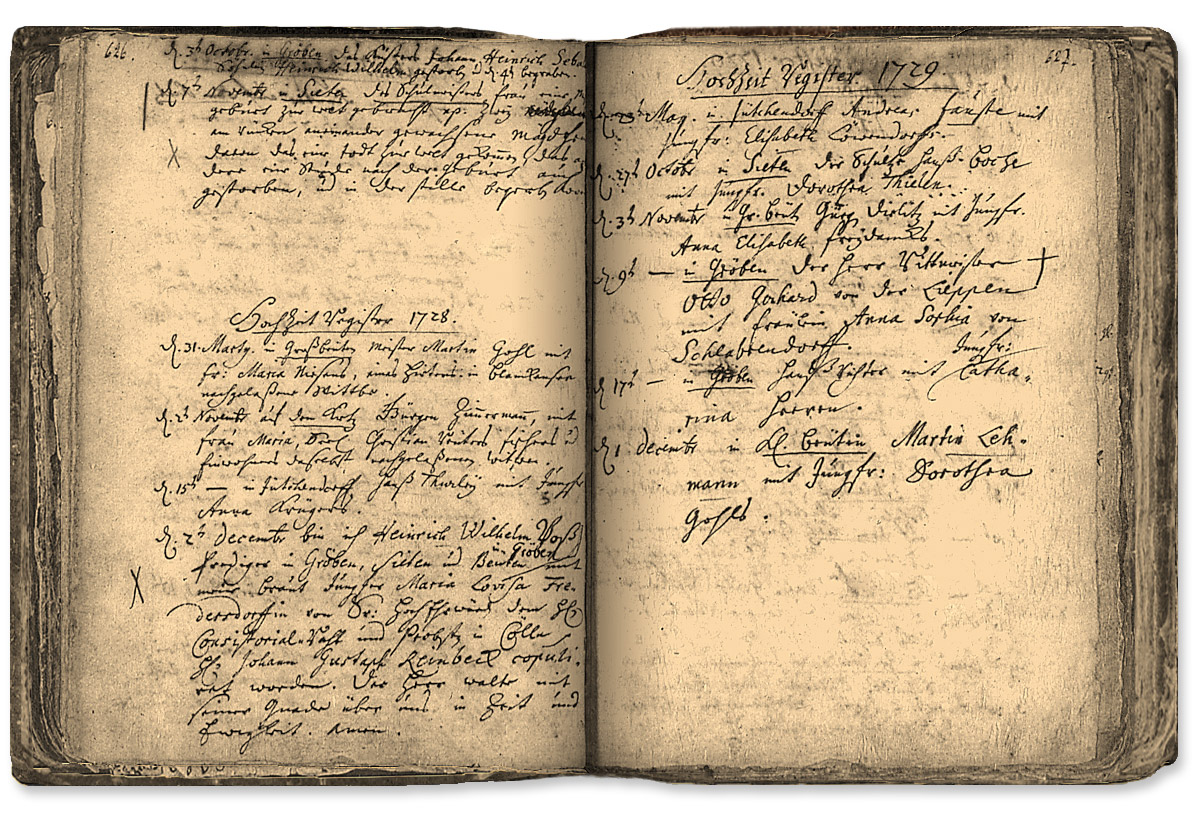 626.
d. 3t Octobr. in Gröben des Küsters Johann Heinrich
Söhnl. Heinrich Wilhelm gestorb. u d. 4t begraben.
d. 7t Novembr in Sieten des Schulmeisters Frau eine
geburt zur welt gebracht zwey
am Rücken aneinander gewachsene Mägdl
davon das eine todt zur welt gekommen, das
dere eine Stunde nach der geburt auch
gestorben, u in der stille
Hochzeit Register 1728.
d. 31. Marty. in Großbeuten Meister Martin Gohl mit
fr. Maria eines Hirtens in Blanckensee
nachgelaßene Wittbe.
d. 2t Novembr auf dem Kietz Jürgen Zimermann mit
frau Maria, Christian Fischers u
Einwohners daselbst nachgelaßenen Witben.
d. 15t — in Jütchendorff Hanß Thurley mit Jungfr
Anna Krügers.
d. 2t Decembr bin ich Heinrich Wilhelm Voß
Prediger in Gröben, Sieten u Beuten mit
Gröben
meiner braut Jungfer Maria Lovisa Fre-
dersdorffin von Sr: Hochehrwürd dem H
Consistorial-Raht und Probst in Cölln
H. Johann Gustaph Reinbeck copuli-
ret worden. Der Herr walte mit
seiner Gnade über uns in Zeit und
Ewigkeit. Amen.
627.
Hochzeit Register 1729.
May. in Jütchendorff Andreas Hanste mit
Jungfr: Elisabeth Lowendorfs.
d. 27t Octobr in Sieten der Schultz Hanß Boche
mit Jungfr. Dorothea Thielen.
d. 3t Novembr in Gr. beut Gürg Dielitz mit Jungfr.
Anna Elisabeth Freydancks.
d. 9t — in Gröben der Herr Rittmeister
Otto Gerhard von der Lieppen
mit Fräulein Anna Sophia von
Schlabrendorff.
d 17t — in Gröben Hanß Richter mit Jungfr: Catha-
rina Heeren.
d. 1 Decembr in Kl. Beutin Martin Leh-
mann mit Jungfr: Dorothea
Gohls.